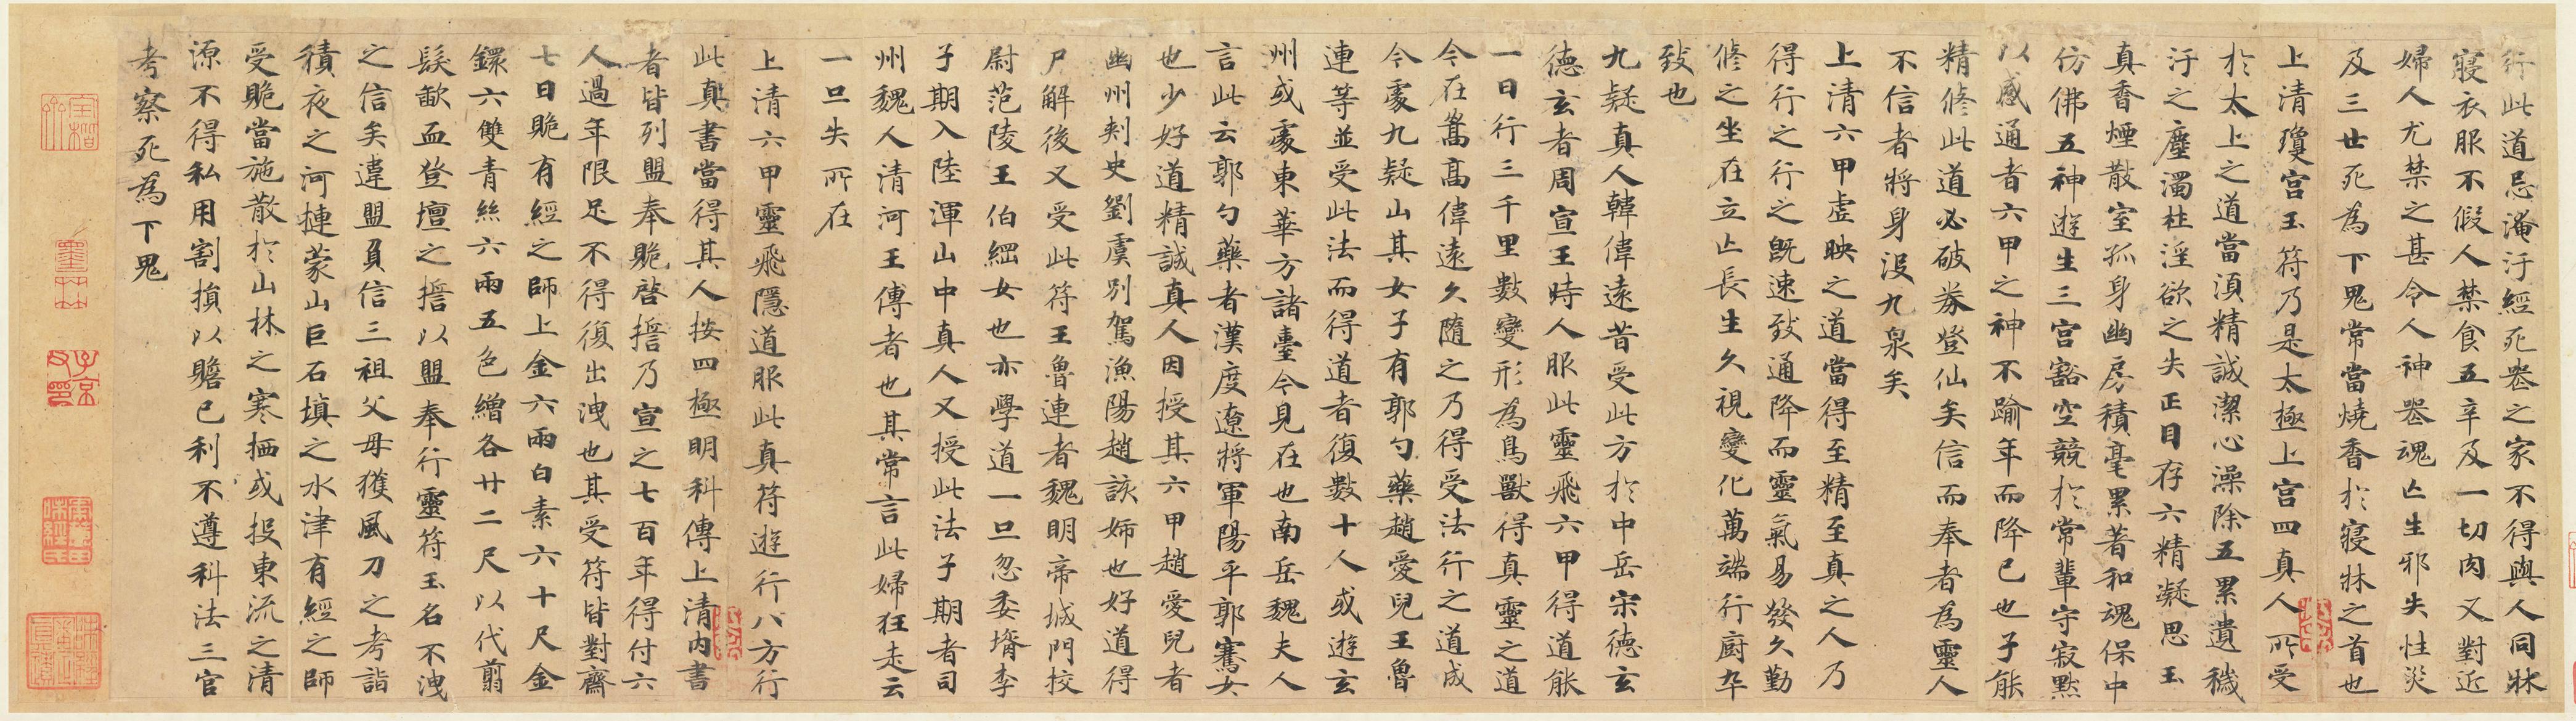 行此道忌淹汙經死丧之家不得與人同牀
寢衣服不假人禁食五辛及一切肉又對近
婦人尤禁之甚令人神喪魂亡生邪失性災
及三世死為下鬼常當燒香於寢牀之首也
上清瓊宮玉符乃是太極上宮四真人所受
於太上之道當須精誠潔心澡除五累遺穢
汙之塵濁杜淫欲之失正目存六精凝思玉
真香煙散室孤身幽房積毫累著和魂保中
仿佛五神遊生三宮豁空競於常輩守寂默
以感通者六甲之神不踰年而降已也子能
精修此道必破券登仙矣信而奉者為靈人
不信者將身沒九泉矣
上清六甲虛映之道當得至精至真之人乃
得行之行之既速致通降而靈氣易發久勤
修之坐在立亡長生久視變化萬端行廚卒
致也
九疑真人韓偉遠昔受此方於中岳宋德玄
德玄者周宣王時人服此靈飛六甲得道能
一日行三千里數變形為鳥獸得真靈之道
今在嵩高偉遠久隨之乃得受法行之道成
今處九疑山其女子有郭勺藥趙愛兒王魯
連等並受此法而得道者復數十人或遊玄
州或處東華方諸臺今見在也南岳魏夫人
言此云郭勺藥者漢度遼將軍陽平郭騫女
也少好道精誠真人因授其六甲趙愛兒者
幽州刾史劉虞別駕漁陽趙該姉也好道得
尸解後又受此符王魯連者魏明帝城門校
尉范陵王伯綱女也亦學道一旦忽委壻李
子期入陸渾山中真人又授此法子期者司
州魏人清河王傅者也其常言此婦狂走云
一旦失所在
上清六甲靈飛隱道服此真符遊行八方行
此真書當得其人按四極明科傳上清內書
者皆列盟奉贶啓誓乃宣之七百年得付六
人過年限足不得復出洩也其受符皆對齋
七日贶有經之師上金六兩白素六十尺金
鐶六雙青絲六兩五色繒各廿二尺以代翦
髮歃血登壇之誓以盟奉行靈符玉名不洩
之信矣違盟負信三祖父母獲風刀之考詣
積夜之河摙蒙山巨石填之水津有經之師
受贶當施散於山林之寒栖或投東流之清
源不得私用割損以贍己利不遵科法三官
考察死為下鬼